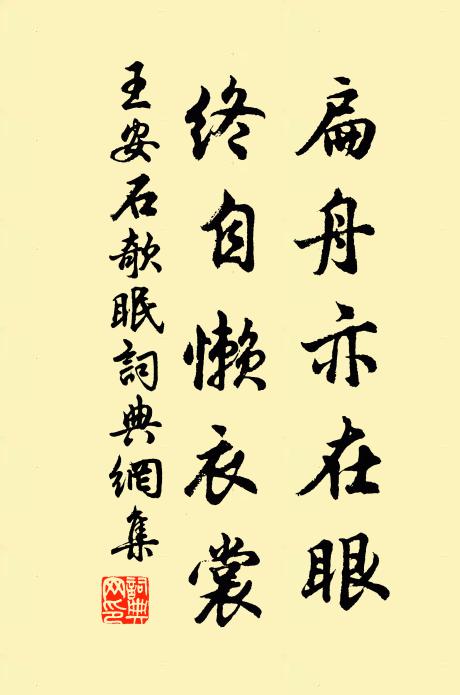 扁舟亦在眼
終自懶衣裳
王安石欹眠詞典網集
詞典